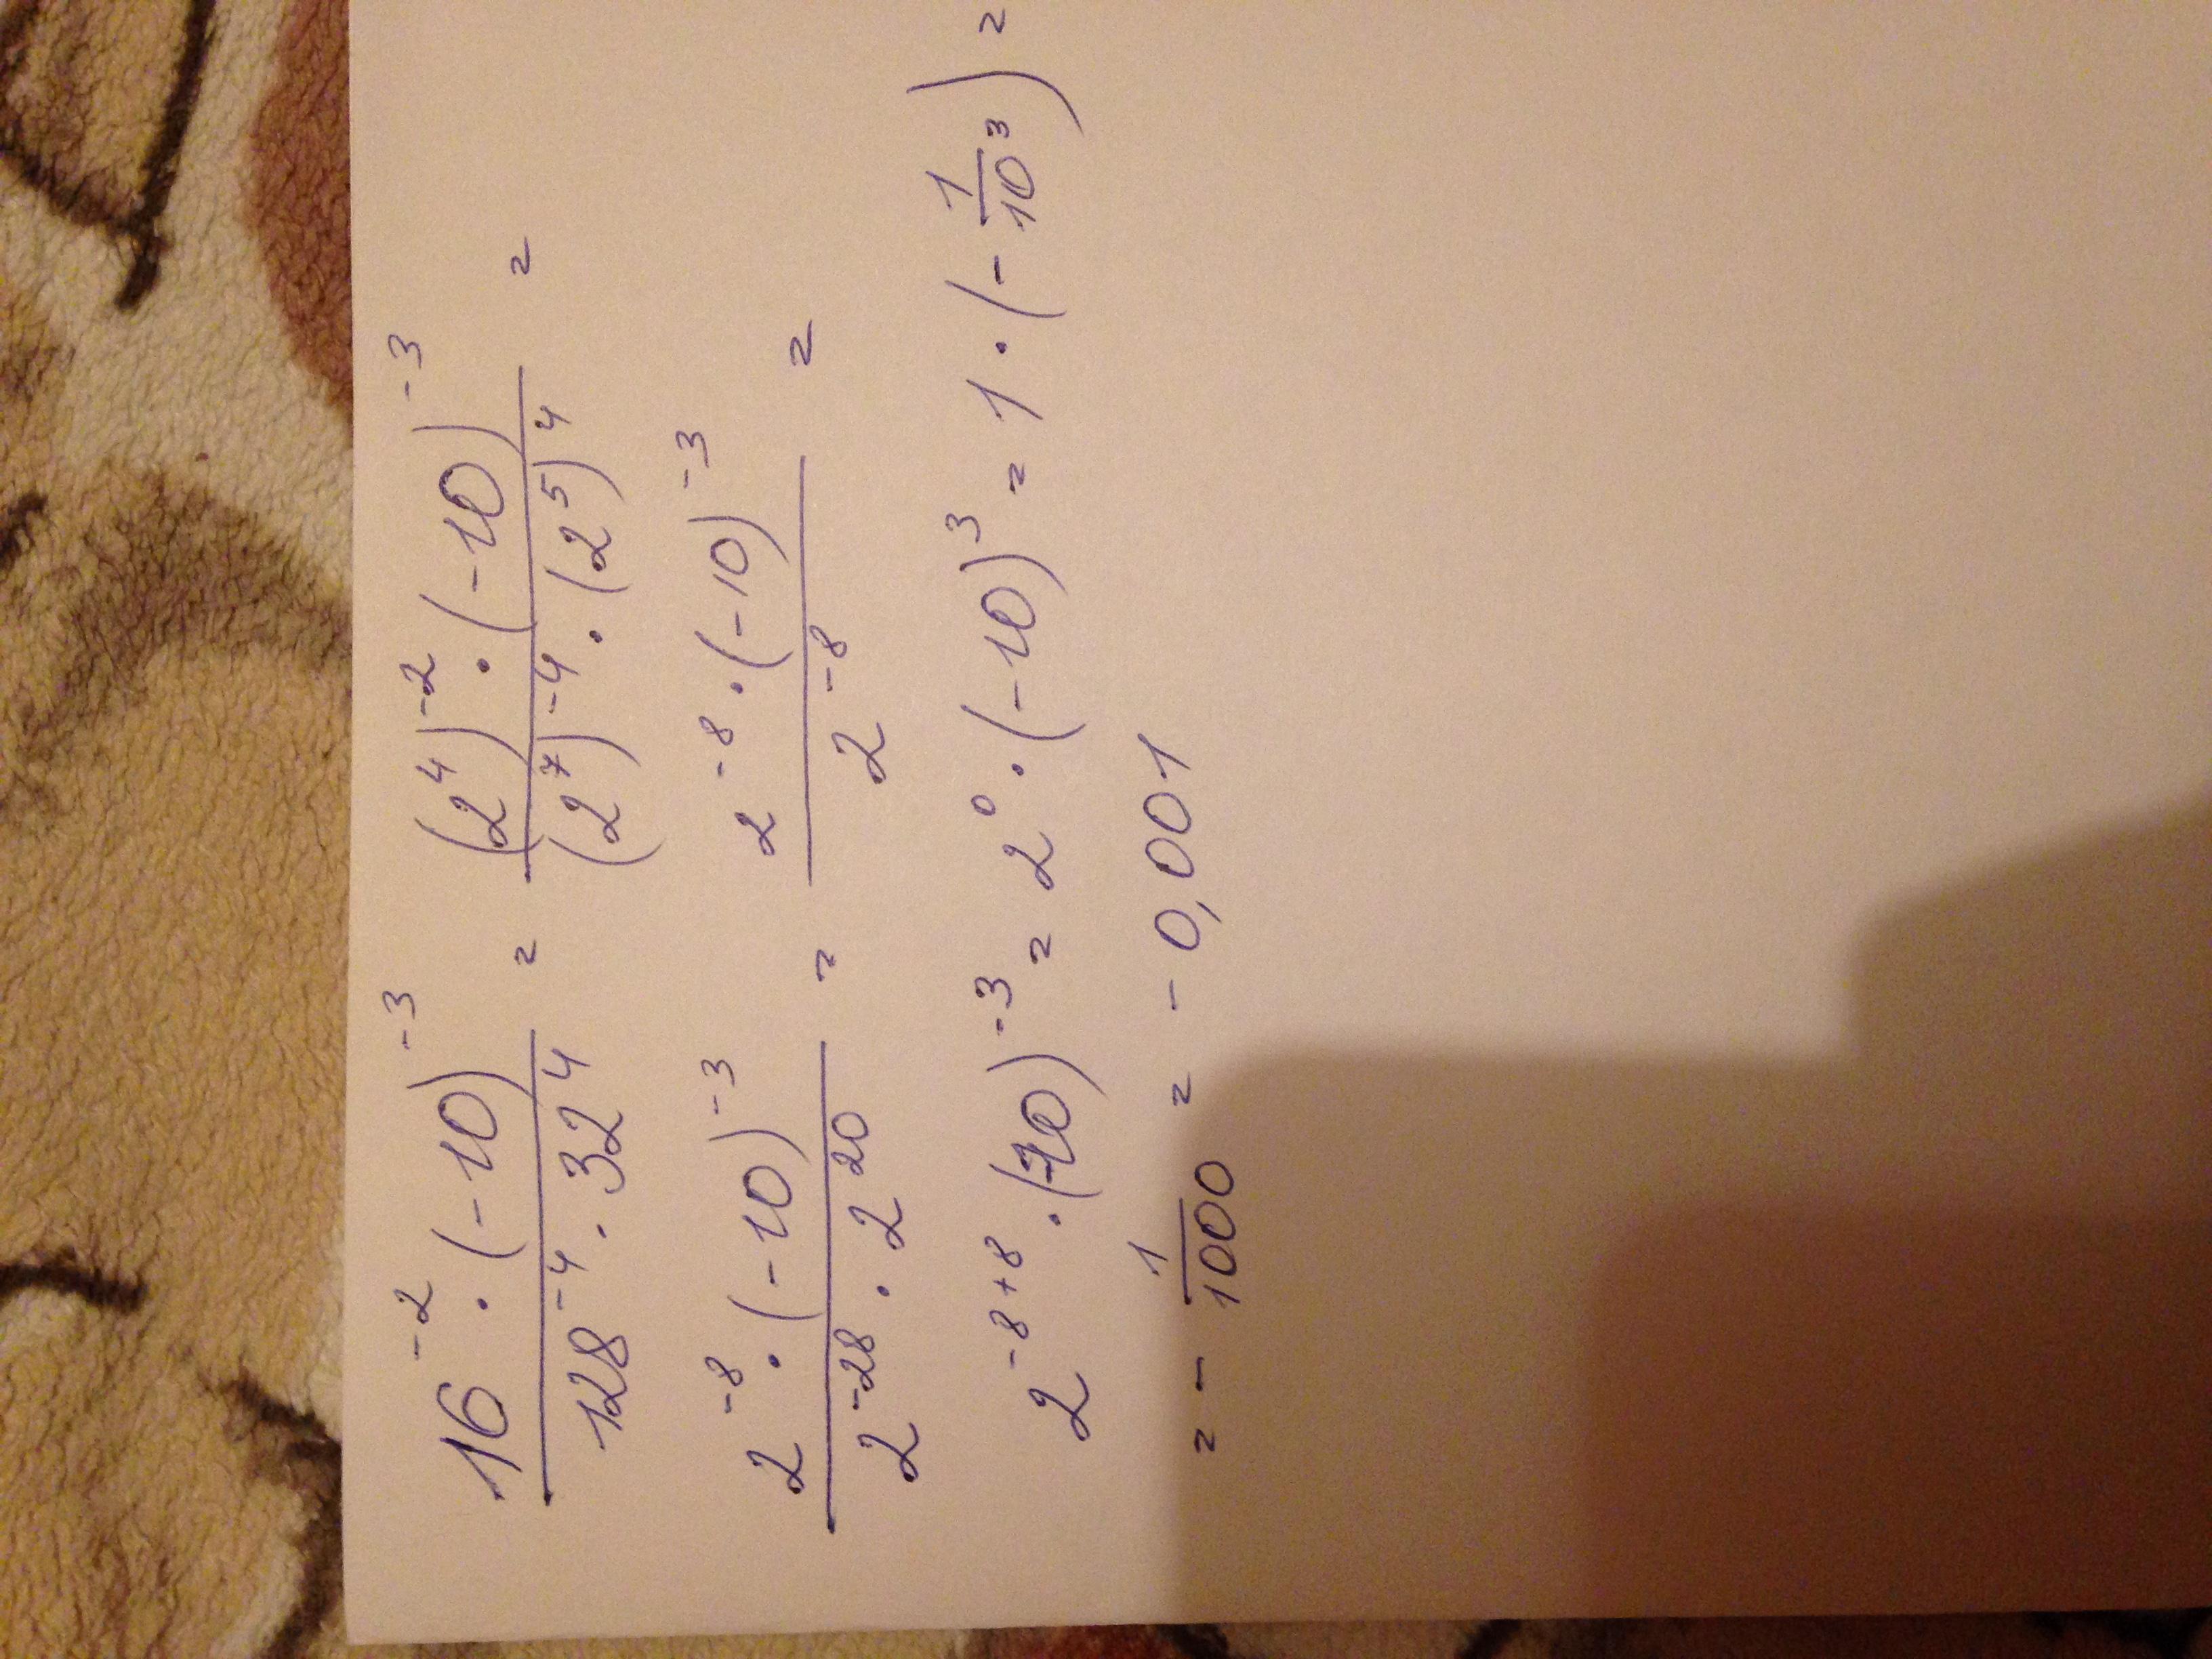 16^-2 · (-10)^-3 / 128^-4 · 32^4 = (2^4)^-2 · (-10)^-3 / (2^7)^-4 · (2^5)^4 =
2^-8 · (-10)^-3 / 2^-28 · 2^20 = 2^-8 · (-10)^-3 / 2^-8 =
2^-8+8 · (-10)^-3 = 2^0 · (-10)^3 = 1 · (- 1/10^3) =
= - 1/1000 = - 0,001